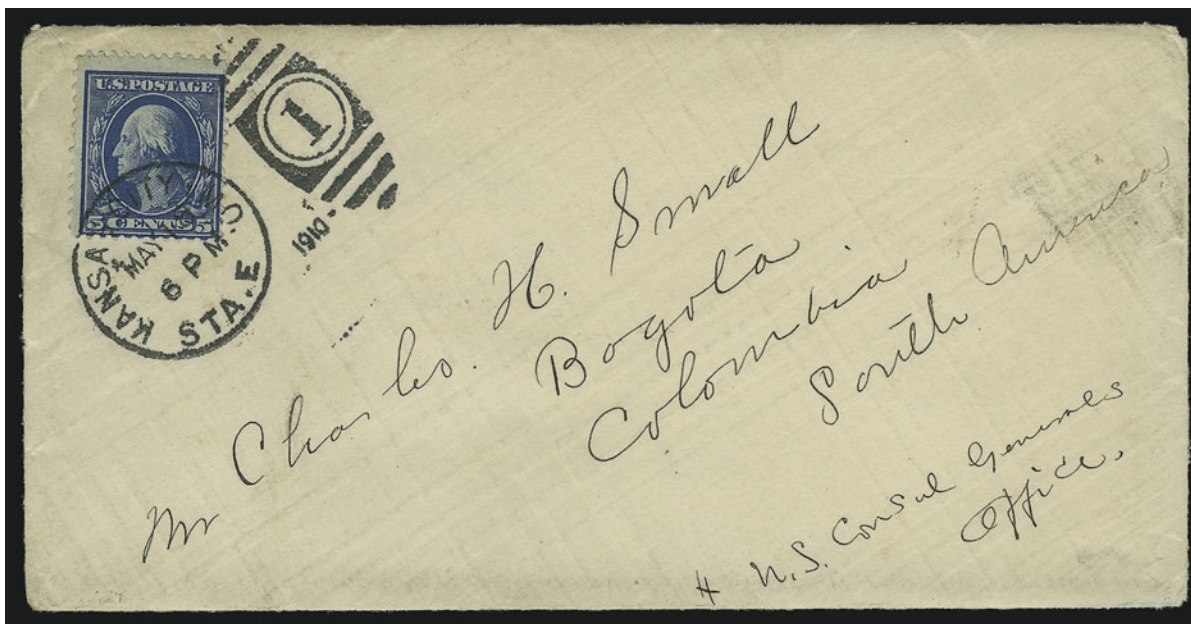 U.S. POSTAGE
5 CENTS 5
KANSAS CITY, MO.
MAY
6 PM
STA. E
1910
1
Mr Charles. H. Small
Bogota
Colombia
South America
U.S. Consul Generals
Office.